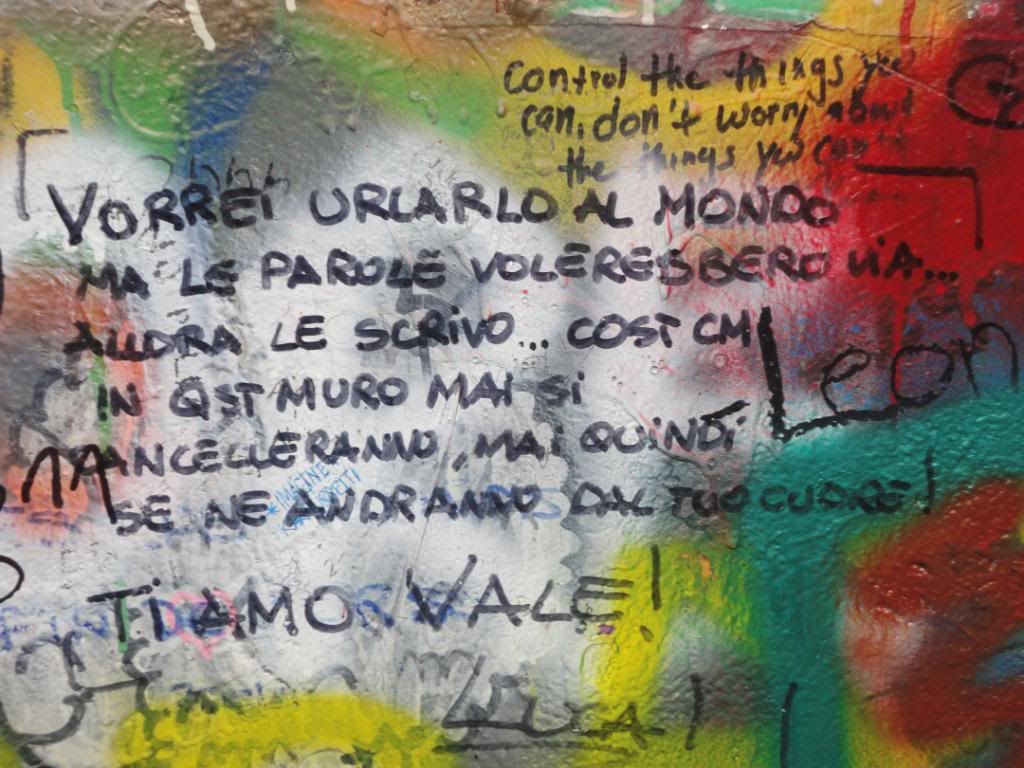 Control the things you
can, don't worry about
the things you can't
VORREI URLARLO AL MONDO
MA LE PAROLE VOLERESBERO VIA...
ALLORA LE SCRIVO... COSI CM
IN QST MURO MAI SI
CANCELLERANNO, MAI QUINDI
SE NE ANDRANNO DAL TUO CUORE!
Leon
*IMAGINE
TI AMO VALE!